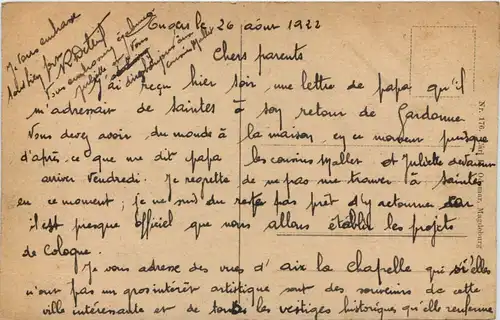 le 26 août 1922
Chers parents
J'ai reçu hier soir une lettre de papa qu'il
m'adressait de Saintes à son retour de Gardonne
Vous devez avoir du monde à la maison en ce moment puisque
d'après ce que me dit papa les cousins Maller et Juliette devraient
arriver Vendredi. Je regrette de ne pas me trouver à Saintes
en ce moment; je ne suis du reste pas prêt d'y retourner car
il est presque officiel que nous allons établir les projets
de Cologne.
Je vous adresse des vues d'aix la Chapelle qui si elles
n'ont pas un gros intérêt artistique sont des souvenirs de cette
ville intéressante et de tous les vestiges historiques qu'elle renferme
J'vous embrasse
bien fort
Vous embrasserez
Juliette et
Maller
Nr. 170.
Magdeburg